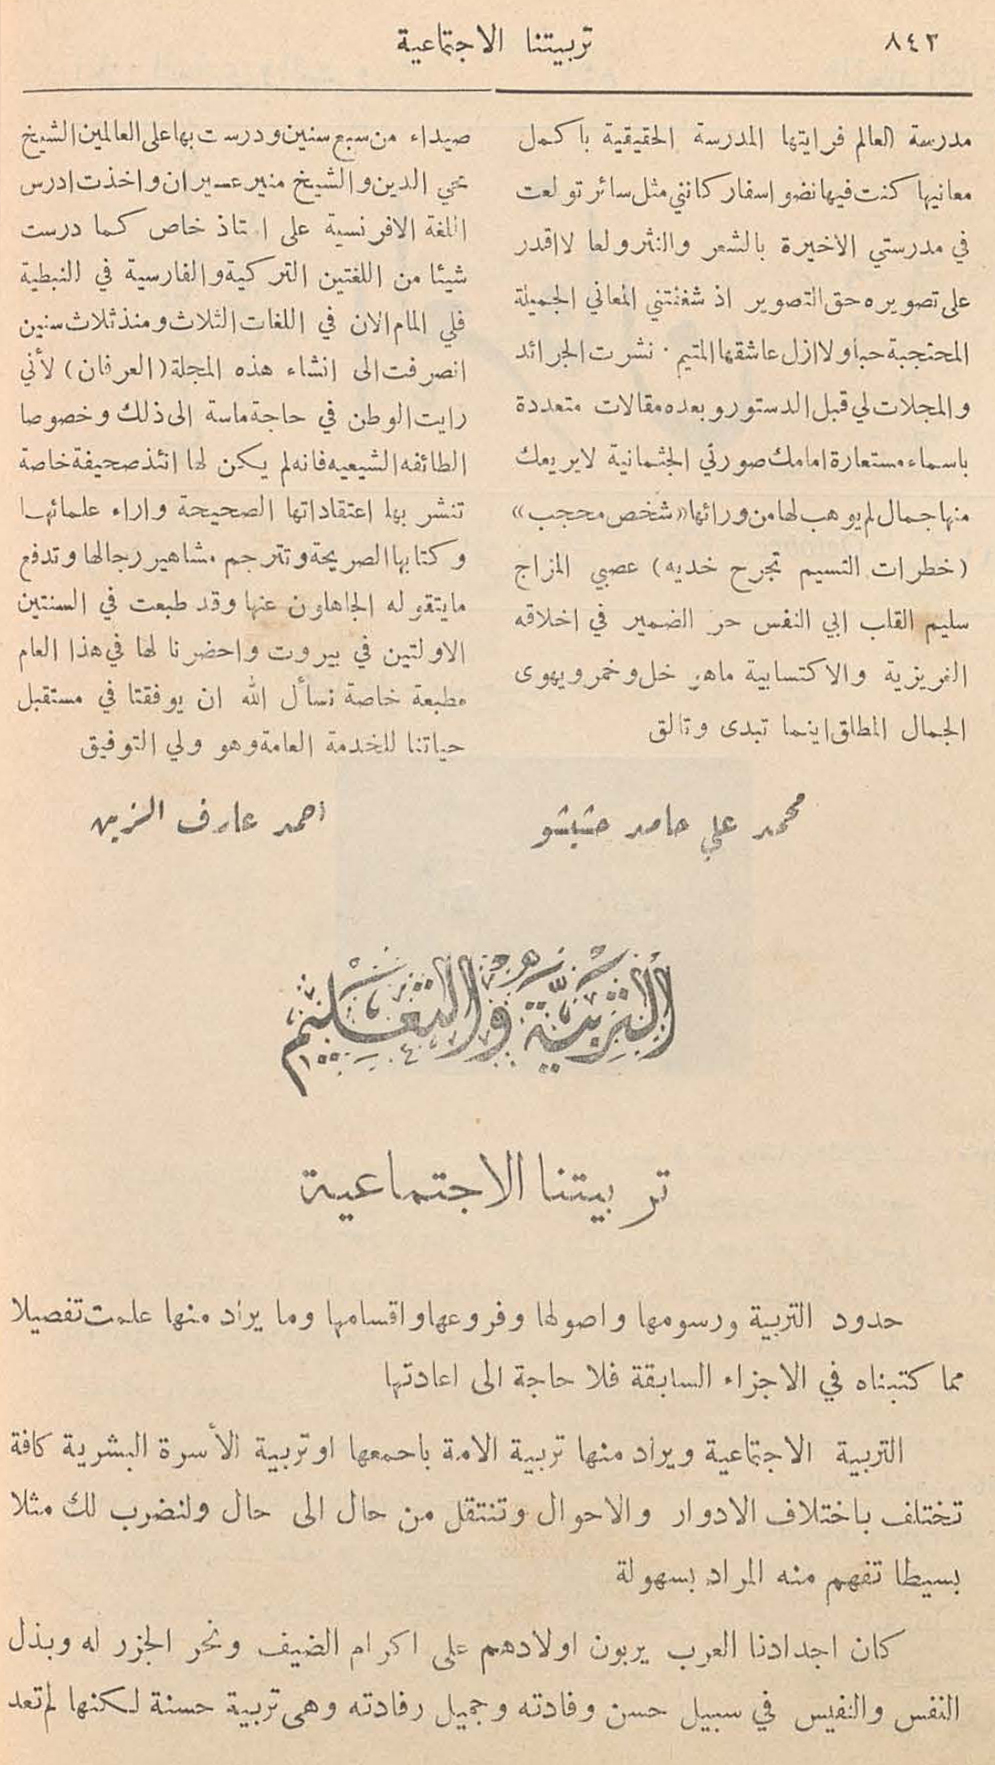 ٨٤٢
تربيتنا الاجتماعية
مدرسة العالم فرايتها المدرسة الحقيقية باكمل
معانيها كنت فيها نضو اسفار كانني مثل سائر تولعت
في مدرستي الاخيرة بالشعر والنثر ولعا لااقدر
على تصويره حق التصوير اذ شغفتني المعاني الجميلة
المحتجبة حبا ولاازل عاشقها المتيم ٠ نشرت الجرائد
والمجلات لي قبل الدستور وبعده مقالات متعددة
باسماء مستعارة امامك صورتي الجثمانية لايريعك
منها جمال لم يوهب لها من ورائها «شخص محجب»
(خطرات النسيم تجرح خديه) عصبي المزاج
سليم القلب ابي النفس حر الضمير في اخلاقه
الغريزية والاكتسابية ماهو خل وخمر ويهوى
الجمال المطلق اينما تبدى وتالق
محمد علي حامد حشيشو
صيداء من سبع سنين ودرست بها على العالمين الشيخ
محي الدين والشيخ منير عسيران واخذت ادرس
اللغة الافرنسية على استاذ خاص كما درست
شيئا من اللغتين التركية والفارسية في النبطية
فلي المام الان في اللغات الثلاث ومنذ ثلاث سنين
انصرفت الى انشاء هذه المجلة (العرفان) لأني
رايت الوطن في حاجة ماسة الى ذلك وخصوصا
الطائفه الشيعيه فانه لم يكن لها انئذ صحيفة خاصة
تنشر بها اعتقاداتها الصحيحة واراء علمائها
وكتابها الصريحة وتترجم مشاهير رجالها وتدفع
مايتقوله الجاهلون عنها وقد طبعت في السنتين
الاولتين في بيروت واحضرنا لها في هذا العام
مطبعة خاصة نسأل الله ان يوفقتا في مستقبل
حياتنا للخدمة العامة وهو ولي التوفيق
احمد عارف الزين
التربية والتعليم
تربيتنا الاجتماعية
حدود التربية ورسومها واصولها وفروعها واقسامها وما يراد منها علمت تفصيلا
مما كتبناه في الاجزاء السابقة فلا حاجة الى اعادتها
التربية الاجتماعية ويراد منها تربية الامة باجمعها او تربية الأسرة البشرية كافة
تختلف باختلاف الادوار والاحوال وتنتقل من حال الى حال ولنضرب لك مثلا
بسيطا تفهم منه المراد بسهولة
كان اجدادنا العرب يربون اولادهم على اكرام الضيف ونحر الجزر له وبذل
النفس والنفيس في سبيل حسن وفادته وجميل رفادته وهي تربية حسنة لكنها لم تعد